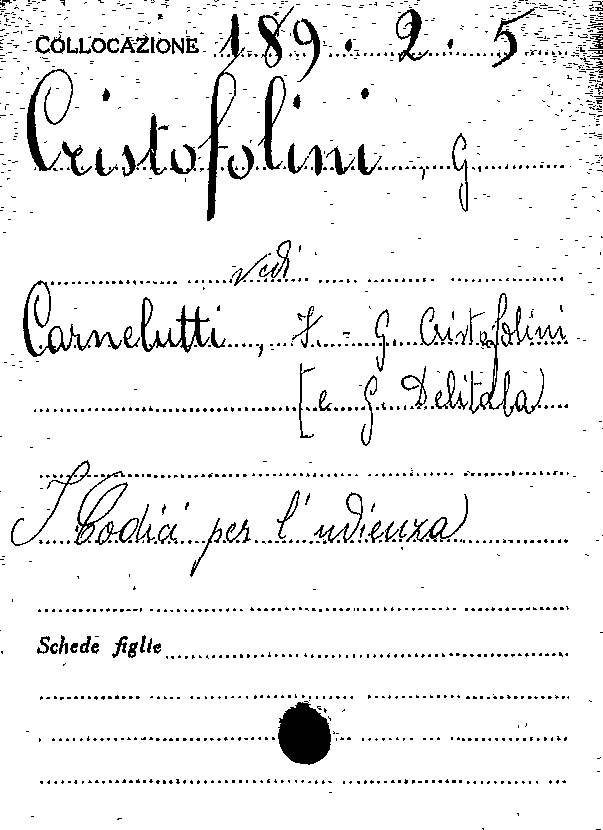 COLLOCAZIONE 189. 2. 5
Cristofolini, G.
vedi
Carnelutti, F. - G. Cristofolini
[e G. Delitala]
I Codici per l'udienza
Schede figlie